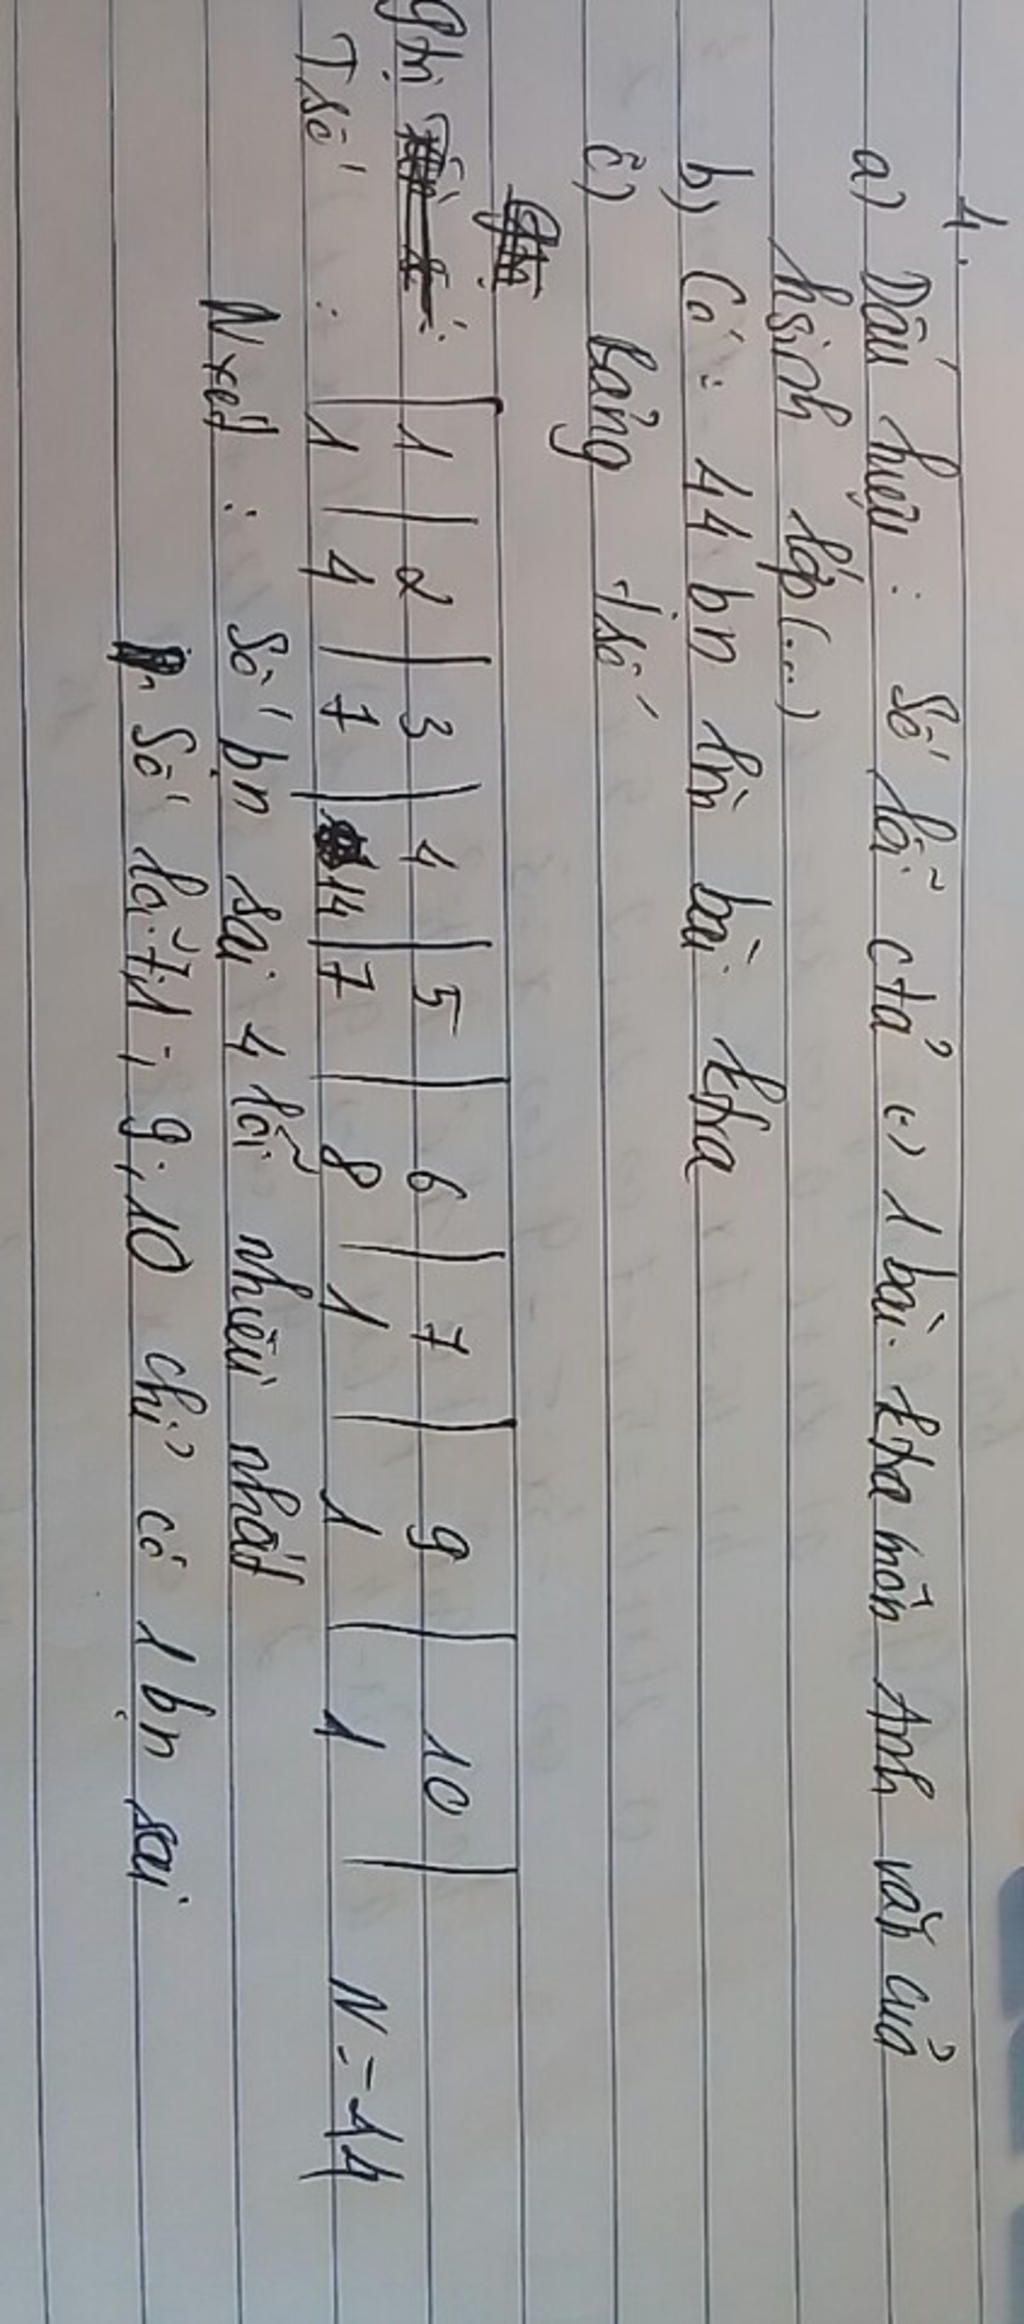 1.
a) Dấu hiệu : Số lỗi ctả (-) 1 bài ktra môn Anh văn của
hsinh lớp (...)
b) Có : 44 bn lm bài ktra
c) Bảng tsố
Gtrị : 1 2 3 4 5 6 7 9 10
Tsố : 1 4 7 14 7 8 1 1 1 N = 44
Nxét : Số bn sai 4 lỗi nhiều nhất
Số lỗi 7; 1 ; 9 ; 10 chỉ có 1 bn sai